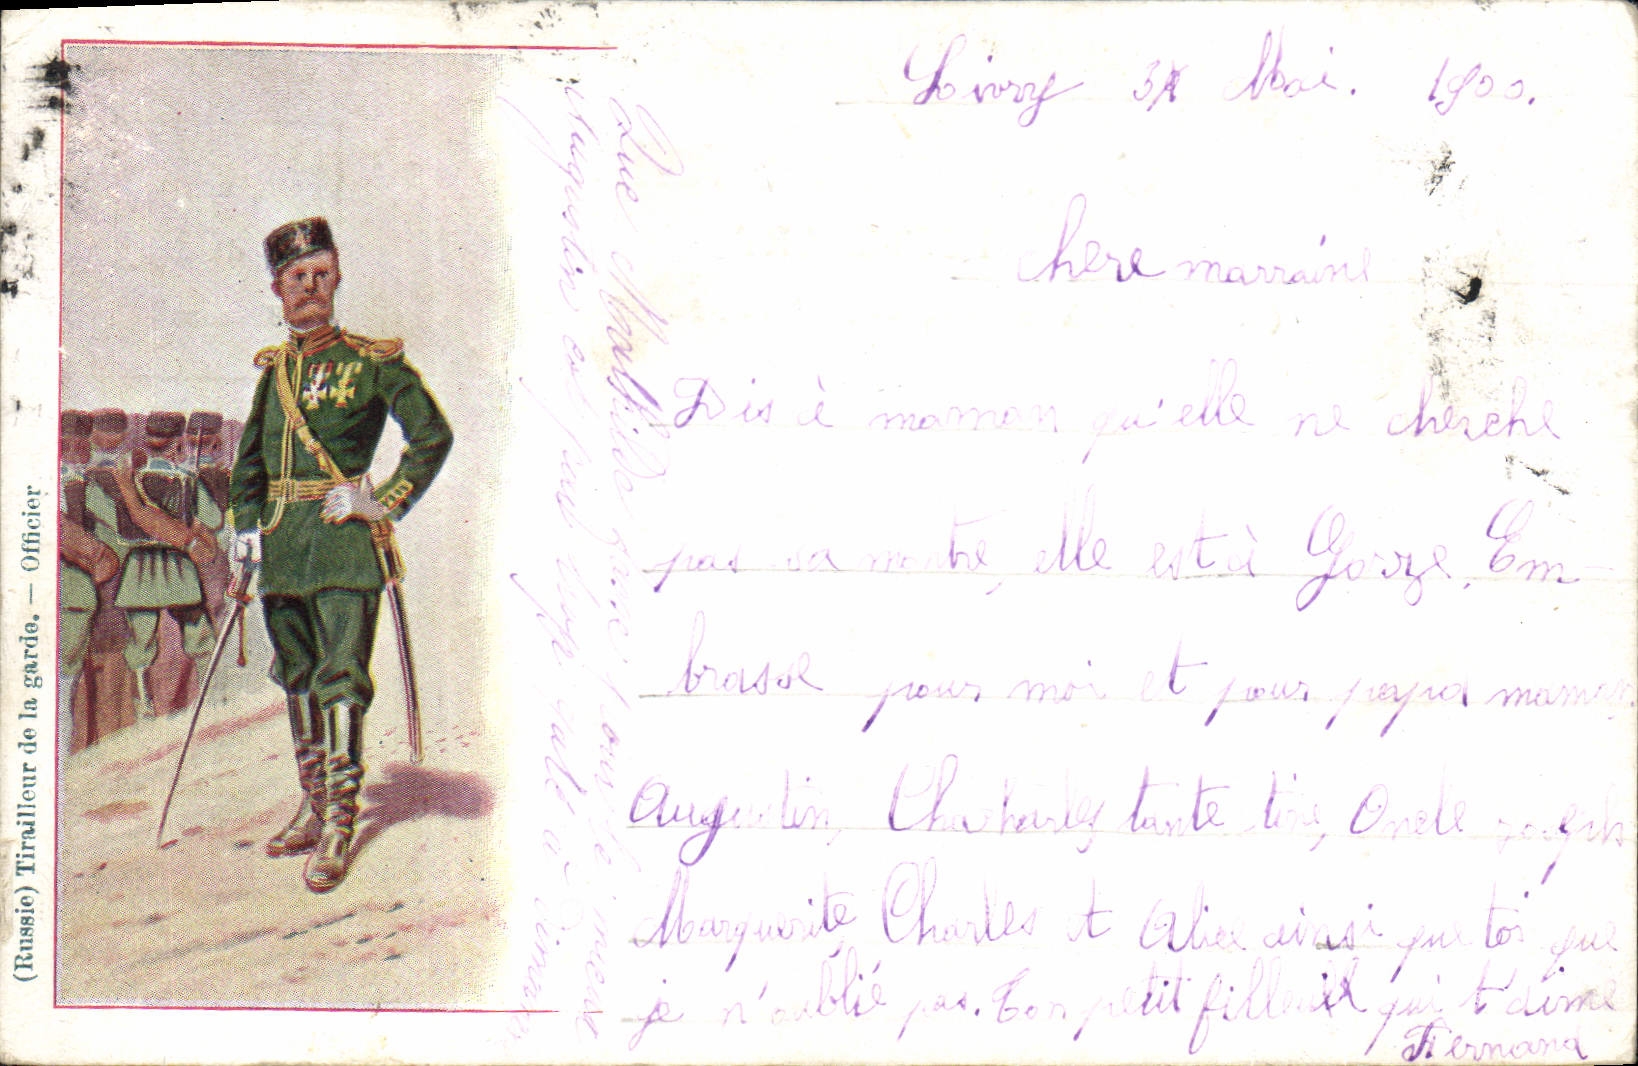 (Russie) Tirailleur de la garde. — Officier
Livry 31 Mai. 1900.
chere marraine
Dis à maman qu'elle ne cherche
pas sa montre, elle est à Gorze. Em-
brasse pour moi et pour papa maman
Augustin, Charles, tante tine, Oncle joseph
Marguerite, Charles et Alice ainsi que toi que
je n'oublié pas. Ton petit filleuil qui t'aime
Fernand
Que Mathilde prenne pour le mieux
Augustin est pas trop sale à